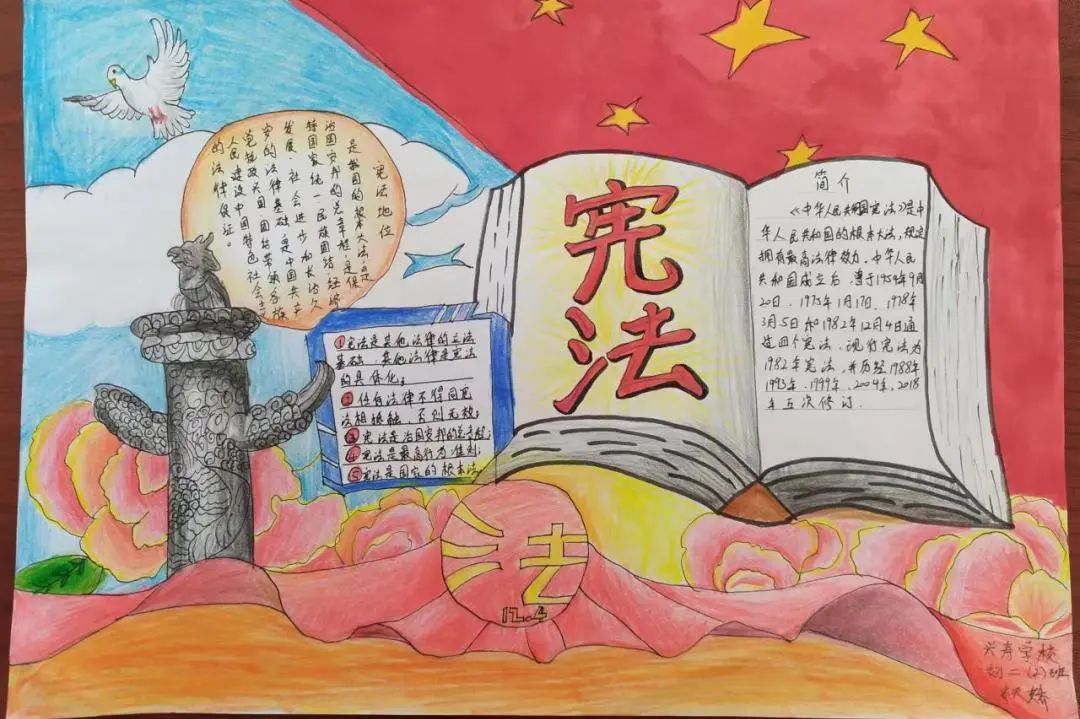 宪法地位
是我国的根本大法,是
治国安邦的总章程,是保
持国家统一、民族团结、经济
发展、社会进步和长治久
安的法律基础,是中国共产
党执政兴国、团结带领各族
人民建设中国特色社会主
的法律保证。
①宪法是其他法律的立法
基础,其他法律是宪法
的具体化。
②任何法律不得同宪
法相抵触,否则无效;
③宪法是治国安邦的总章程;
④宪法是最高行为准则;
⑤宪法是国家的根本法。
宪
法
简介
《中华人民共和国宪法》是中
华人民共和国的根本大法,规定
拥有最高法律效力。中华人民
共和国成立后,曾于1954年9月
20日、1975年1月17日、1978年
3月5日和1982年12月4日通
过四个宪法,现行宪法为
1982年宪法,并历经1988年
1993年、1999年、2004年、2018
年五次修订.
法
12.4
兴寿学校
初二(2)班